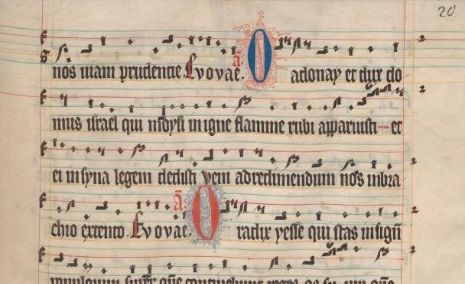 20
a.
nos uiam prudencie Euouae. O adonay et dux do
mus israel qui moysi in igne flamme rubi apparuisti et
ei in syna legem dedisti veni ad redimendum nos in bra
a.
chio extento Euouae. O radix yesse qui stas in signū
populorum super quē continebunt reges os su